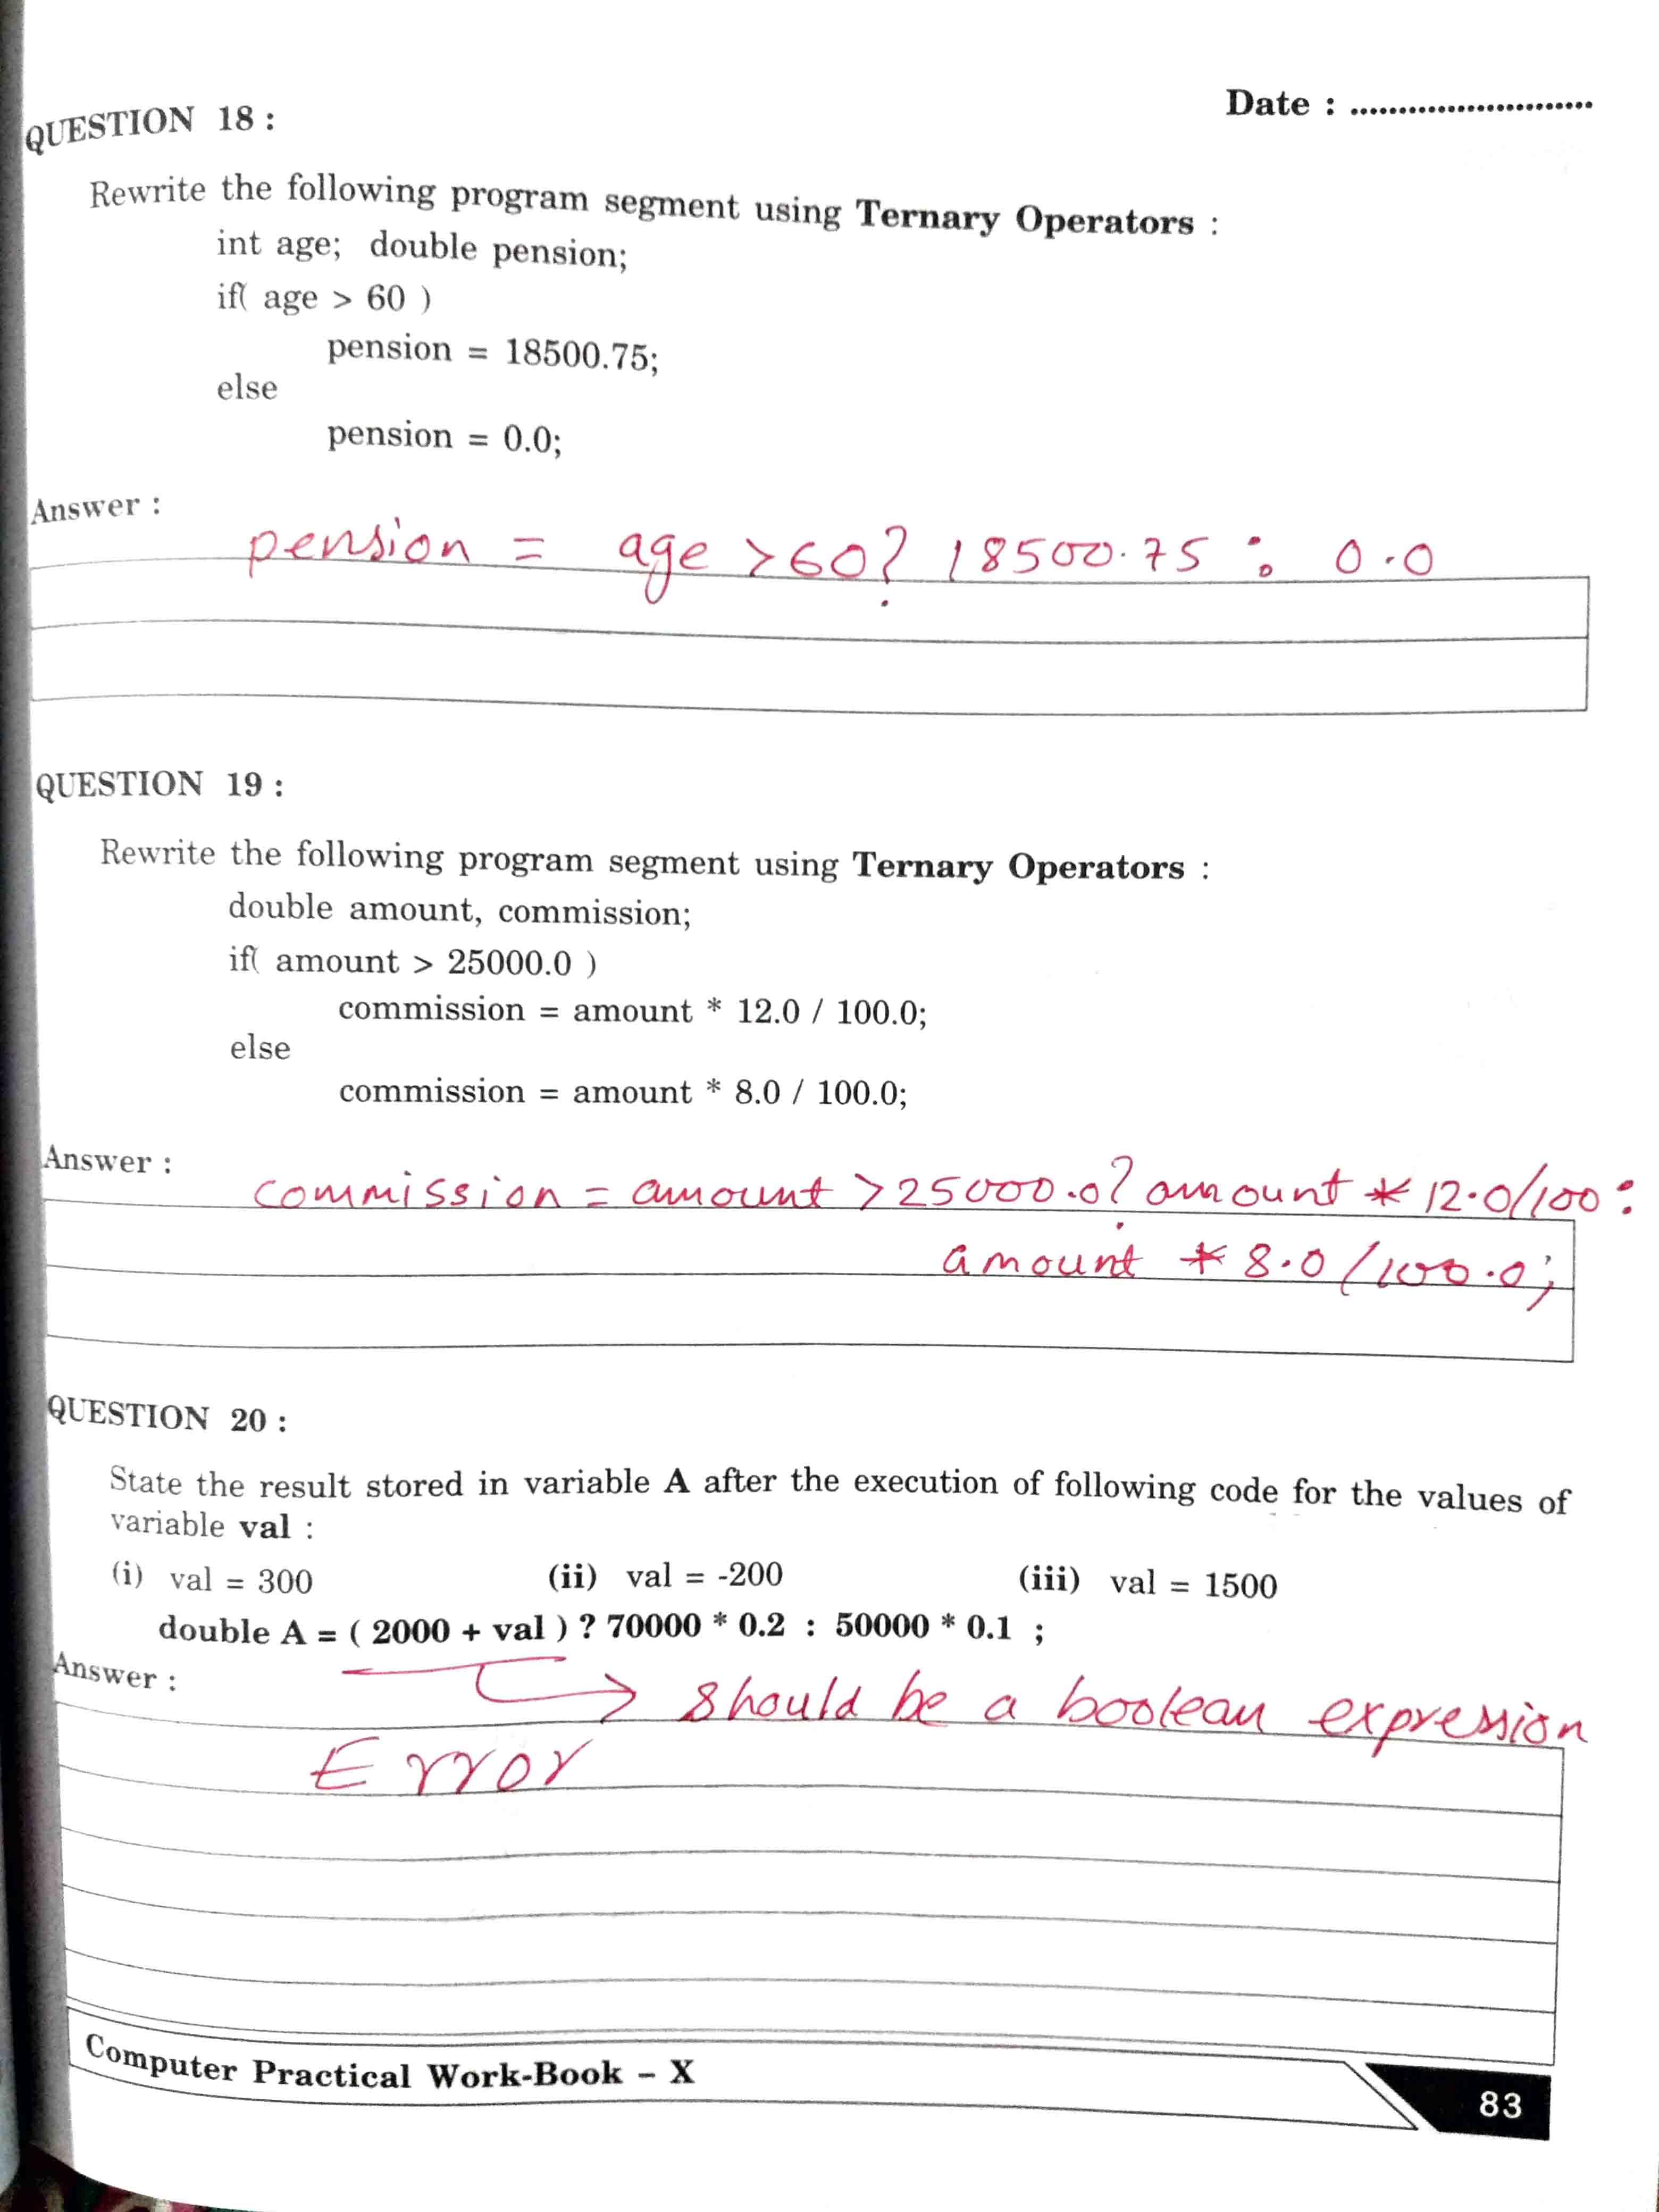 Date : ..........................
QUESTION 18 :
Rewrite the following program segment using Ternary Operators :
int age; double pension;
if( age > 60 )
pension = 18500.75;
else
pension = 0.0;
Answer :
pension = age >60? 18500.75 : 0.0
QUESTION 19 :
Rewrite the following program segment using Ternary Operators :
double amount, commission;
if( amount > 25000.0 )
commission = amount * 12.0 / 100.0;
else
commission = amount * 8.0 / 100.0;
Answer :
commission = amount >25000.0? amount * 12.0/100 :
amount * 8.0/100.0;
QUESTION 20 :
State the result stored in variable A after the execution of following code for the values of
variable val :
(i) val = 300 (ii) val = -200 (iii) val = 1500
double A = ( 2000 + val ) ? 70000 * 0.2 : 50000 * 0.1 ;
Answer :
should be a boolean expression
Error
Computer Practical Work-Book – X
83